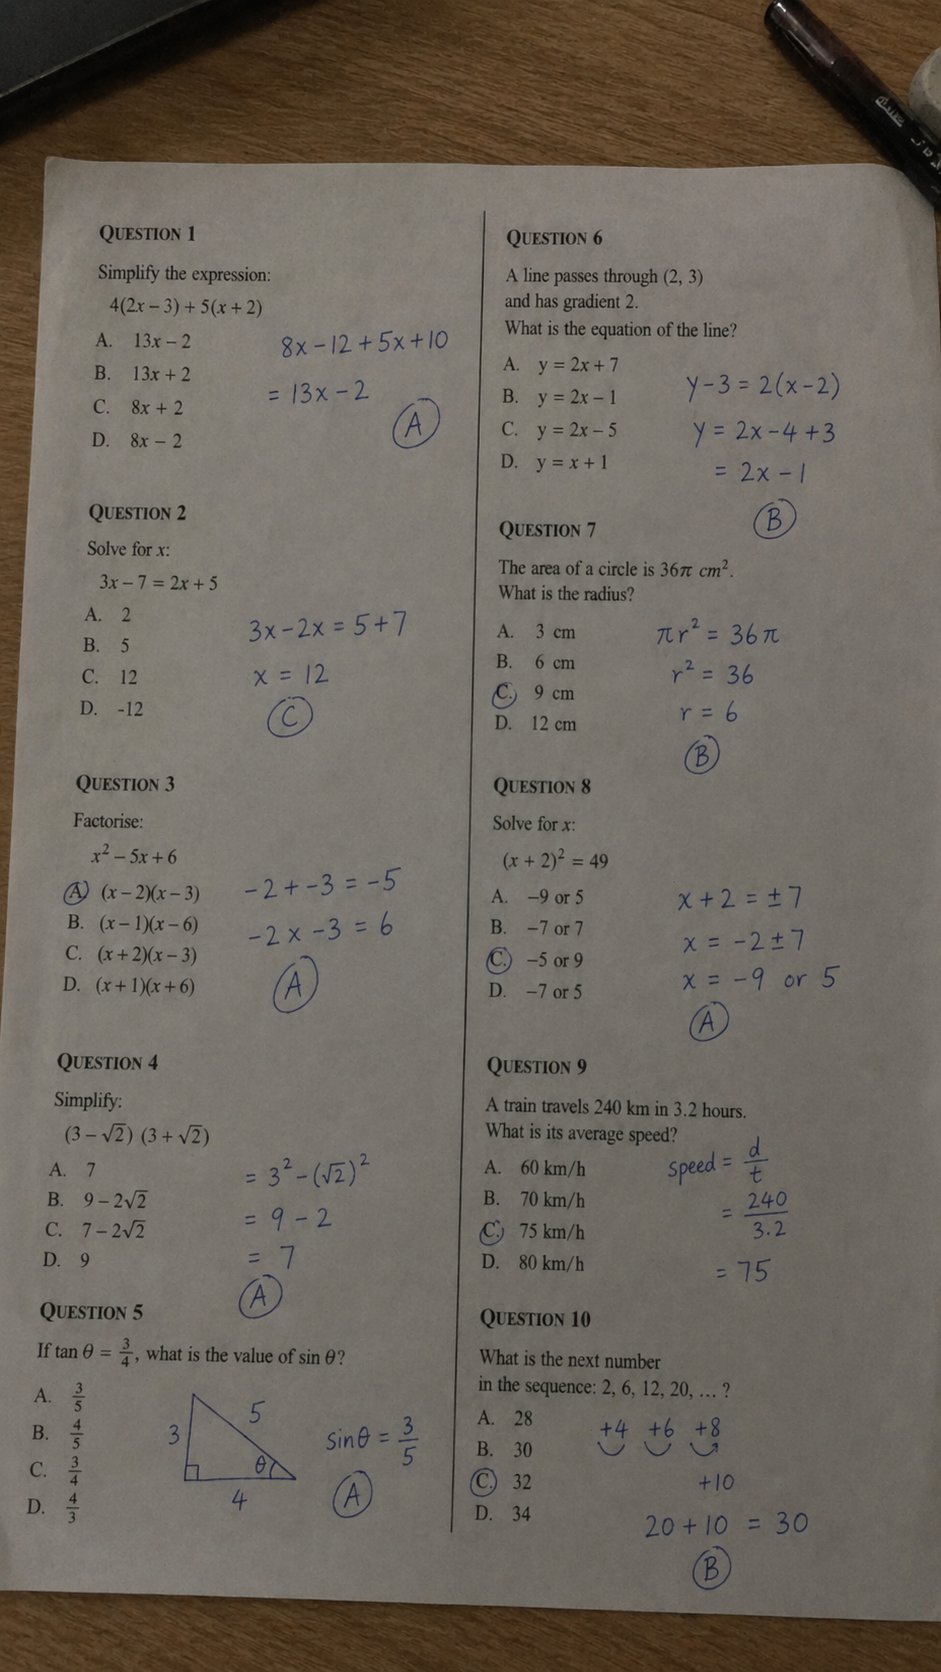 QUESTION 1
Simplify the expression:
4(2x – 3) + 5(x + 2)
A. 13x – 2
B. 13x + 2
C. 8x + 2
D. 8x – 2
8x – 12 + 5x + 10
= 13x – 2
A
QUESTION 2
Solve for x:
3x – 7 = 2x + 5
A. 2
B. 5
C. 12
D. -12
3x – 2x = 5 + 7
x = 12
C
QUESTION 3
Factorise:
x² – 5x + 6
A. (x – 2)(x – 3)
B. (x – 1)(x – 6)
C. (x + 2)(x – 3)
D. (x + 1)(x + 6)
–2 + –3 = –5
–2 x –3 = 6
A
QUESTION 4
Simplify:
(3 – √2) (3 + √2)
A. 7
B. 9 – 2√2
C. 7 – 2√2
D. 9
= 3² – (√2)²
= 9 – 2
= 7
A
QUESTION 5
If tan θ = 3/4, what is the value of sin θ?
A. 3/5
B. 4/5
C. 3/4
D. 4/3
3
5
θ
4
sinθ = 3/5
A
QUESTION 6
A line passes through (2, 3)
and has gradient 2.
What is the equation of the line?
A. y = 2x + 7
B. y = 2x – 1
C. y = 2x – 5
D. y = x + 1
y – 3 = 2(x – 2)
y = 2x – 4 + 3
= 2x – 1
B
QUESTION 7
The area of a circle is 36π cm².
What is the radius?
A. 3 cm
B. 6 cm
C. 9 cm
D. 12 cm
πr² = 36π
r² = 36
r = 6
B
QUESTION 8
Solve for x:
(x + 2)² = 49
A. –9 or 5
B. –7 or 7
C. –5 or 9
D. –7 or 5
x + 2 = ±7
x = –2 ± 7
x = –9 or 5
A
QUESTION 9
A train travels 240 km in 3.2 hours.
What is its average speed?
A. 60 km/h
B. 70 km/h
C. 75 km/h
D. 80 km/h
speed = d/t
= 240/3.2
= 75
QUESTION 10
What is the next number
in the sequence: 2, 6, 12, 20, ... ?
A. 28
B. 30
C. 32
D. 34
+4 +6 +8
+10
20 + 10 = 30
B